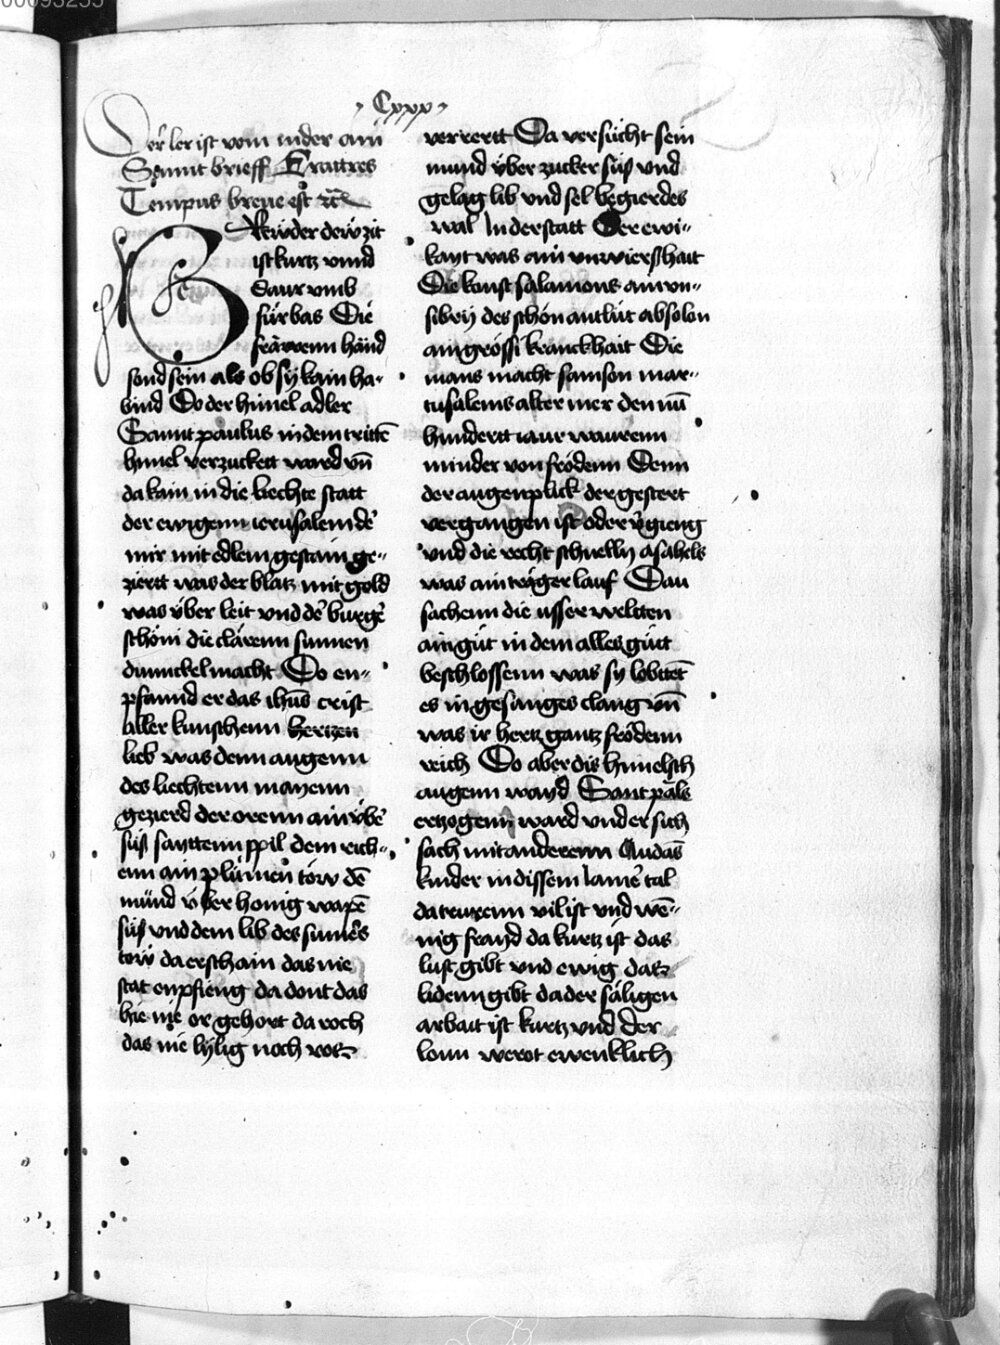 00093255
· Cxxx ·
Der ler ist vom inder am
Sannt brieff Frattres
Tempus breue est etc̄
Brüder dew zit
ist kurtz vnnd
Daur vmb
fürbas Die
frawenn händ
sond sein als ob sy kain ha-
bind Do der himel adler
Sannt paulus in dem tritte
himel verzuckett ward vn̄
da kam in die liechte statt
der ewigenn ierusalem de
mir mit edlem gestain ge-
ziertt was der blatz mit gold
was über leit vnd de burge
schöni die clarenn sunnen
dunnckel macht Do en-
pfannd er das ihūs crist
aller künschenn hertzen
lieb was denn augenn
des liechtenn mayenn
gezierd der orenn ain übe
süß sayttenn spil dem rich-
enn ain plümen tow de
mund über honig wape
süß vnd dem lib des sumers
tow da erschain das nie
stat enpfieng da dont das
hie nie or gehort da roch
das nie lylig noch ros
verrertt Da versücht sein
mund über zucker süß vnd
gelag lib vnd sel begierdes
wal In der statt Der ewi-
kayt was ain vnwierßhait
Die konst salamons ain vn-
sibry des schön antlüt absolon
ain grössi kranckhait Die
mans macht samson mar-
tusalems alter mer den nū
hundertt iaur waurenn
minder von frödenn Denn
der augenplick der gestert
vergangen ist oder vgieng
vnd die recht schnelly asahels
was ain träger lauf Dan
sachenn die usser weltten
ain güt in dem alles gütt
beschlossenn was sy lobttet
es in gesanges clang vn̄
was ir hertz gantz frödenn
reich Do aber dis himelsch
augenn wayd Sant pals
erzogenn ward vnd er sich
sach mit anderenn Audas
kinder in dissem Iame tal
da trurenn vil ist vnd we-
nig frayd da kurtz ist das
lust gibt vnd ewig das
lidenn gibt da der säligen
arbait ist kurtz vnd der
lonn werot ewenklich